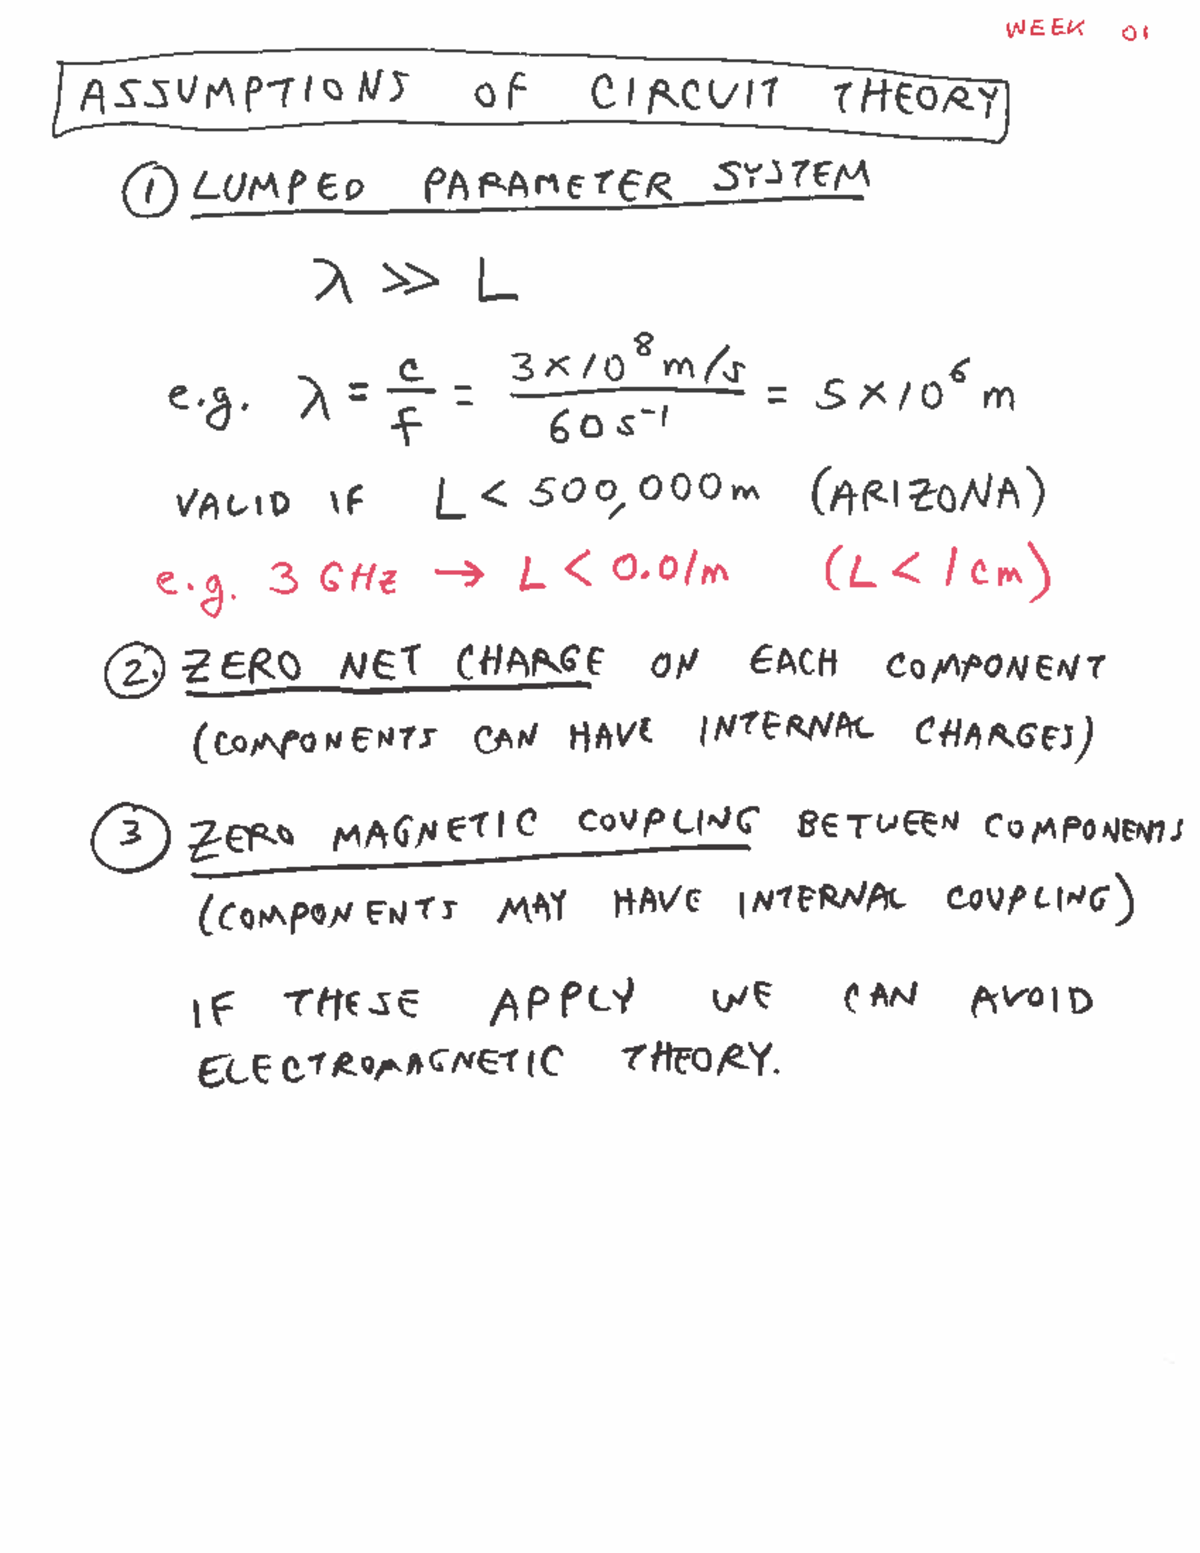 WEEK 01
ASSUMPTIONS OF CIRCUIT THEORY
① LUMPED PARAMETER SYSTEM
λ >> L
e.g. λ = c/f = 3×10⁸ m/s / 60 s⁻¹ = 5×10⁶ m
VALID IF L < 500,000 m (ARIZONA)
e.g. 3 GHz → L < 0.01m (L < 1 cm)
②. ZERO NET CHARGE ON EACH COMPONENT
(COMPONENTS CAN HAVE INTERNAL CHARGES)
③ ZERO MAGNETIC COUPLING BETWEEN COMPONENTS
(COMPONENTS MAY HAVE INTERNAL COUPLING)
IF THESE APPLY WE CAN AVOID
ELECTROMAGNETIC THEORY.